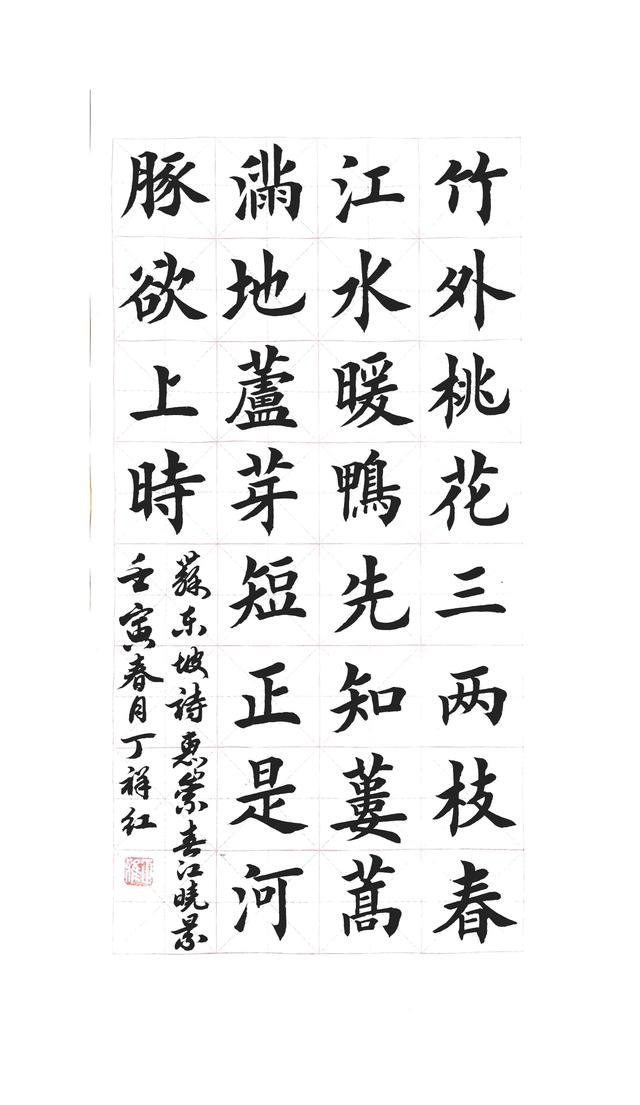 竹外桃花三两枝春
江水暖鴨先知蔞蒿
滿地蘆芽短正是河
豚欲上時
蘇东坡詩惠崇春江曉景
壬寅春月丁祥红